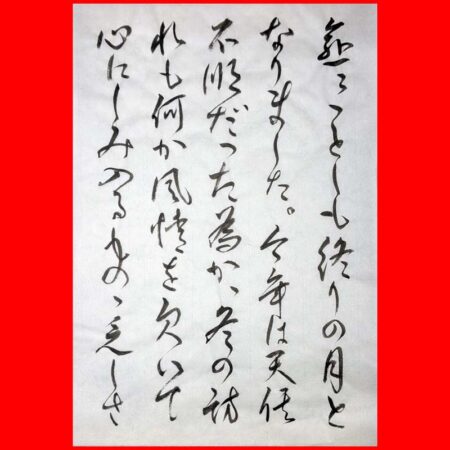 愈々ことしも終りの月と
なりました。今年は天候
不順だった為か、冬の訪
れも何か風情を欠いて
心にしみ入るものゝ乏しさ